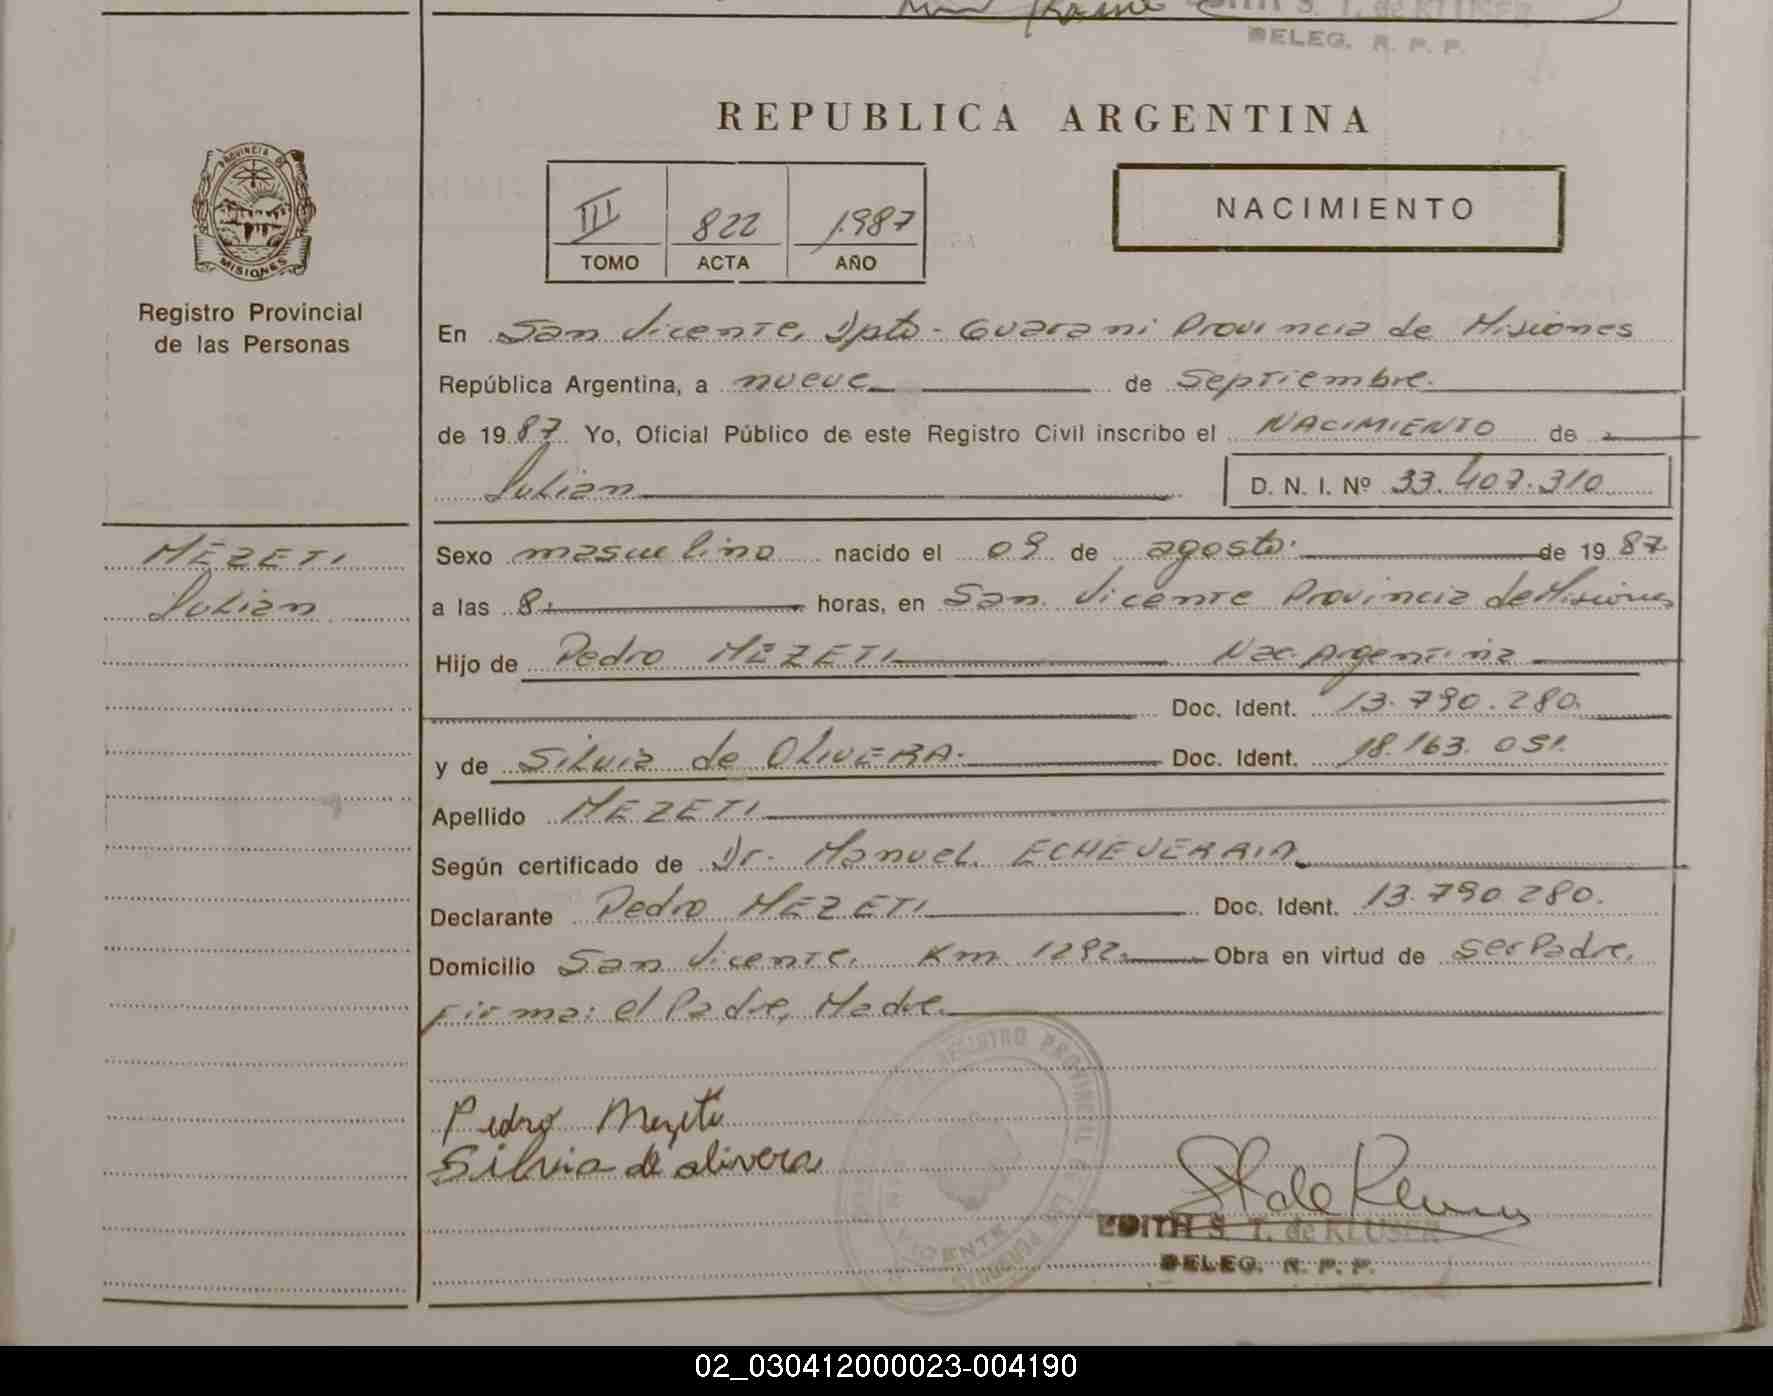 DELEG. R. P. P.
REPUBLICA ARGENTINA
PROVINCIA DE
MISIONES
Registro Provincial
de las Personas
III 822 1987
TOMO ACTA AÑO
NACIMIENTO
En San Vicente, Dpto - Guarani Provincia de Misiones
República Argentina, a nueve de Septiembre.
de 1987 Yo, Oficial Público de este Registro Civil inscribo el NACIMIENTO de
Julian D. N. I. Nº 33.407.310
MEZETI
Julian
Sexo masculino nacido el 09 de agosto. de 1987
a las 8. horas, en San Vicente Provincia de Misiones
Hijo de Pedro MEZETI Nac. Argentina
Doc. Ident. 13.790.280.
y de Silvia de OLIVERA. Doc. Ident. 18.163.051.
Apellido MEZETI
Según certificado de Dr. Manuel ECHEVERRIA
Declarante Pedro MEZETI Doc. Ident. 13.790 280.
Domicilio San Vicente. Km 1292. Obra en virtud de ser Padre.
Firma: el Padre, Madre.
REGISTRO PROVINCIAL DE LAS PERSONAS
VICENTE
Pedro Mezeti
Silvia de olivera
EDITH S. T. de KLUSER
DELEG. R. P. P.
02_030412000023-004190